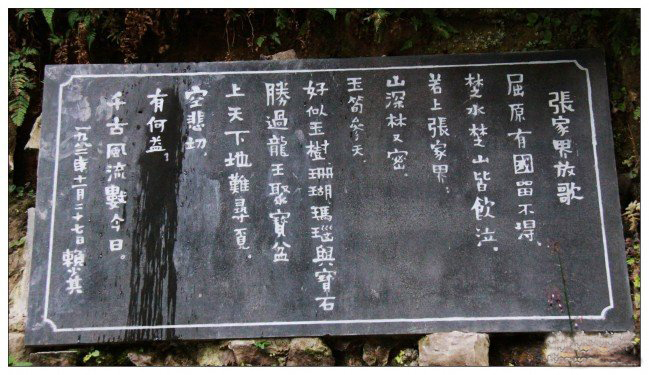 張家界放歌
屈原有國留不得、
楚水楚山皆飲泣。
若上張家界、
山深林又密、
玉筍參天、
好似玉樹珊瑚瑪瑙與寶石
勝過龍王聚寶盆
上天下地難尋覓。
空悲切、
有何益，
千古風流數今日。
一九八三年十一月二十七日 賴少其